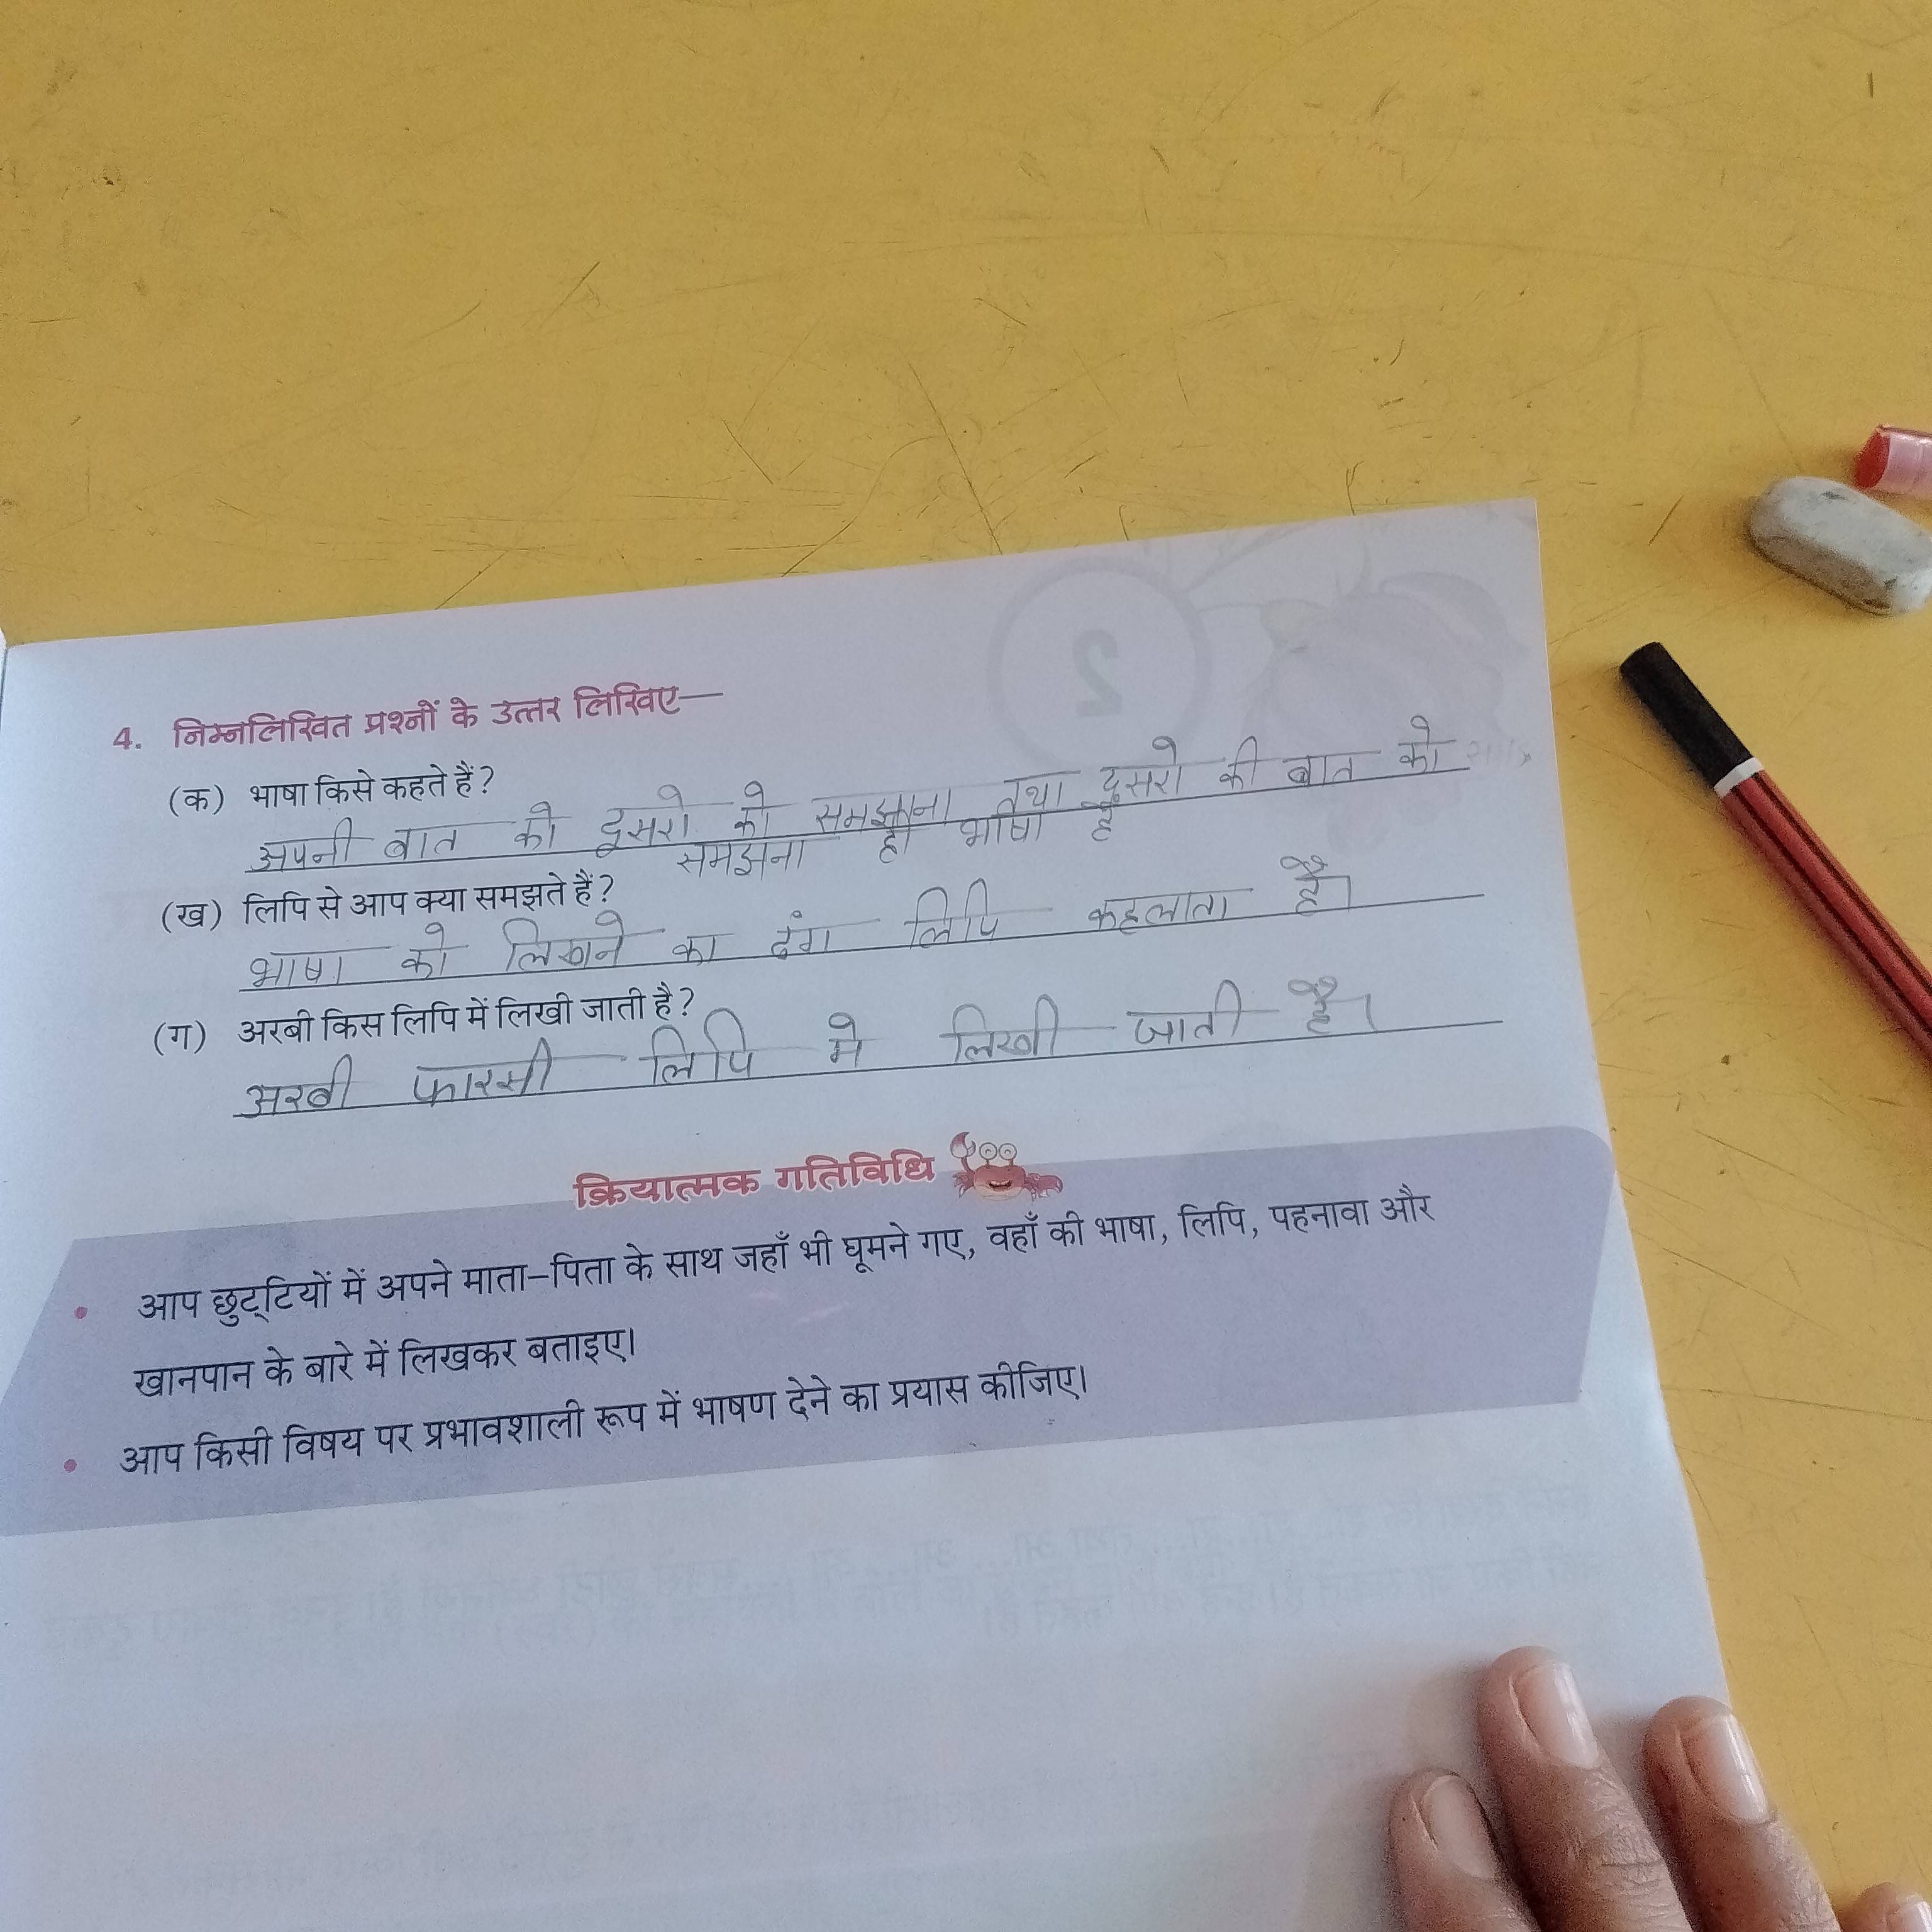 4. निम्नलिखित प्रश्नों के उत्तर लिखिए—
(क) भाषा किसे कहते हैं?
अपनी बात को दूसरो को समझाना तथा दूसरो की बात को
समझना ही भाषा है
(ख) लिपि से आप क्या समझते हैं?
भाषा को लिखने का ढंग लिपि कहलाता है।
(ग) अरबी किस लिपि में लिखी जाती है?
अरबी फारसी लिपि मे लिखी जाती है।
क्रियात्मक गतिविधि
• आप छुट्टियों में अपने माता-पिता के साथ जहाँ भी घूमने गए, वहाँ की भाषा, लिपि, पहनावा और
खानपान के बारे में लिखकर बताइए।
• आप किसी विषय पर प्रभावशाली रूप में भाषण देने का प्रयास कीजिए।